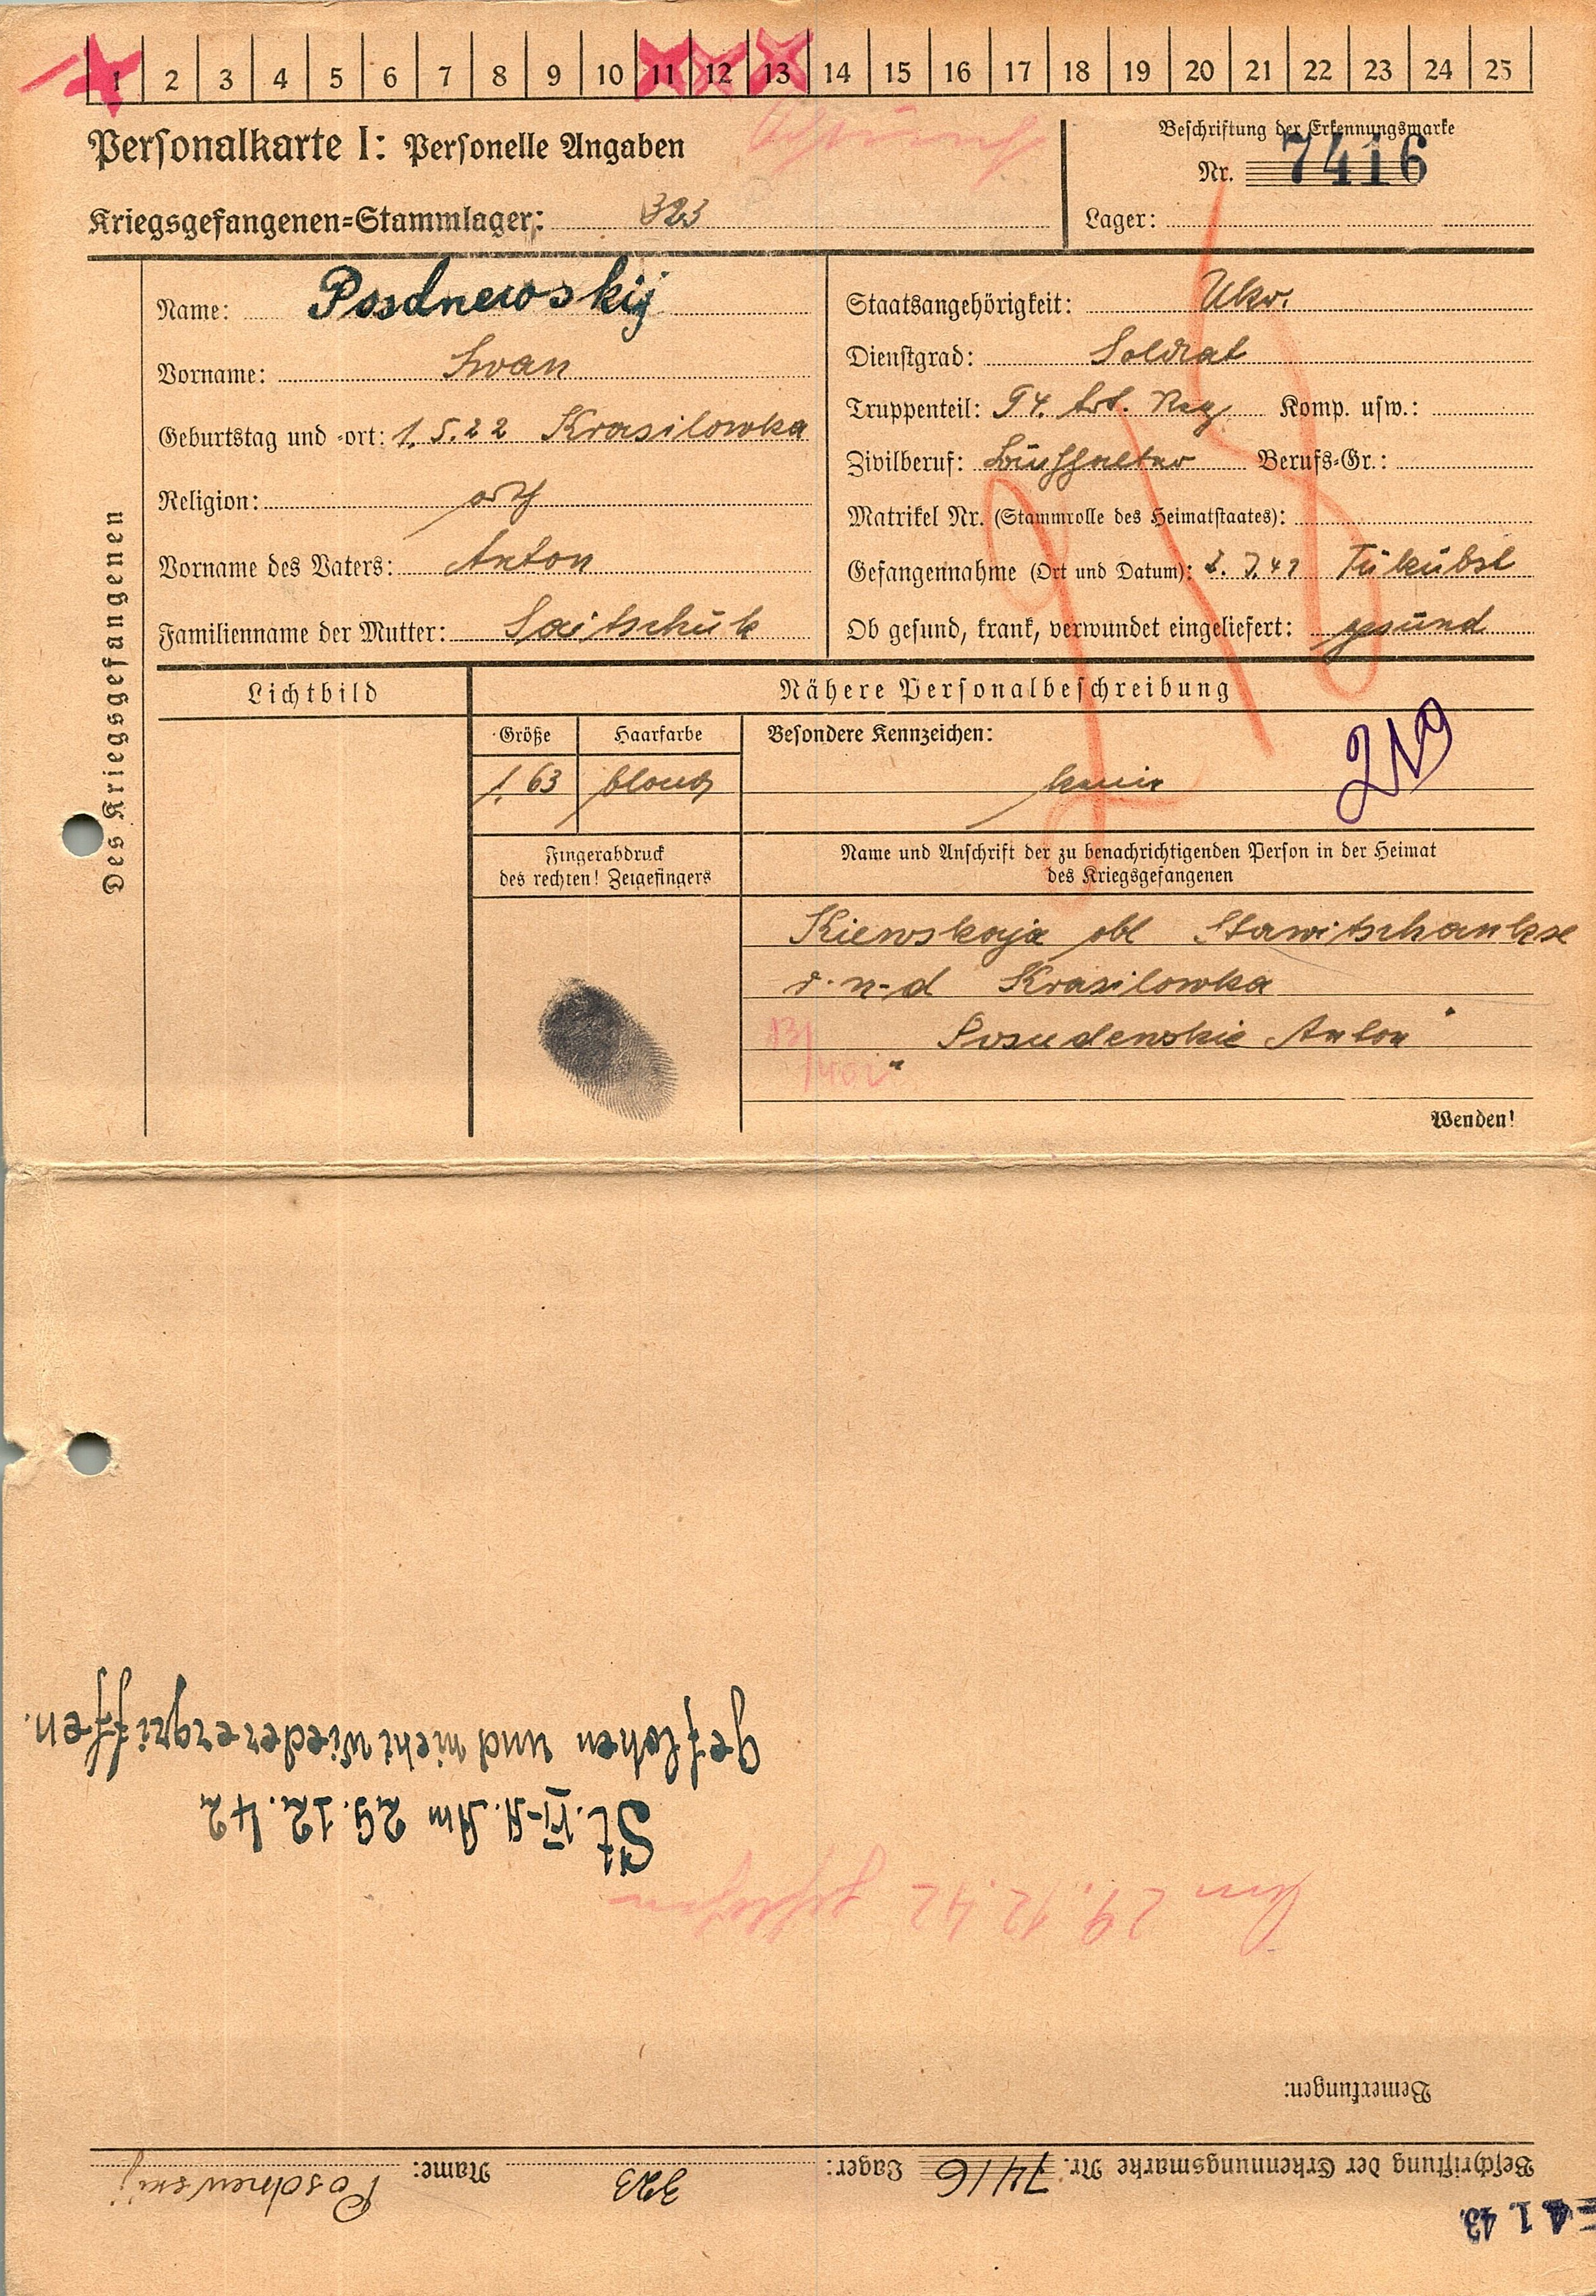 1 2 3 4 5 6 7 8 9 10 11 12 13 14 15 16 17 18 19 20 21 22 23 24 25
Personalkarte I: Personelle Angaben
Beschriftung der Erkennungsmarke
Nr. 7416
Kriegsgefangenen=Stammlager: 323
Lager:
Des Kriegsgefangenen
Name: Posdnewskij
Vorname: Iwan
Geburtstag und -ort: 1.5.22 Krasilowka
Religion: orth
Vorname des Vaters: Anton
Familienname der Mutter: Saitschuk
Staatsangehörigkeit: Ukr.
Dienstgrad: Soldat
Truppenteil: 94. Art. Reg Komp. usw.:
Zivilberuf: Berufs=Gr.:
Matrikel Nr. (Stammrolle des Heimatstaates):
Gefangennahme (Ort und Datum):
Ob gesund, krank, verwundet eingeliefert: gesund
Lichtbild
Nähere Personalbeschreibung
Größe
Haarfarbe
Besondere Kennzeichen:
1.63
blond
keine
219
Fingerabdruck
des rechten! Zeigefingers
Name und Anschrift der zu benachrichtigenden Person in der Heimat
des Kriegsgefangenen
Kiewskaja obl
Krasilowka
Anton
Wenden!
4 1. 43.
Beschriftung der Erkennungsmarke Nr. 7416 Lager: 323 Name: Posdnewskij
Bemerkungen:
Am 29.12.42 geflohen
St. VI-A. Am 29.12.42
geflohen und nicht wiederergriffen.